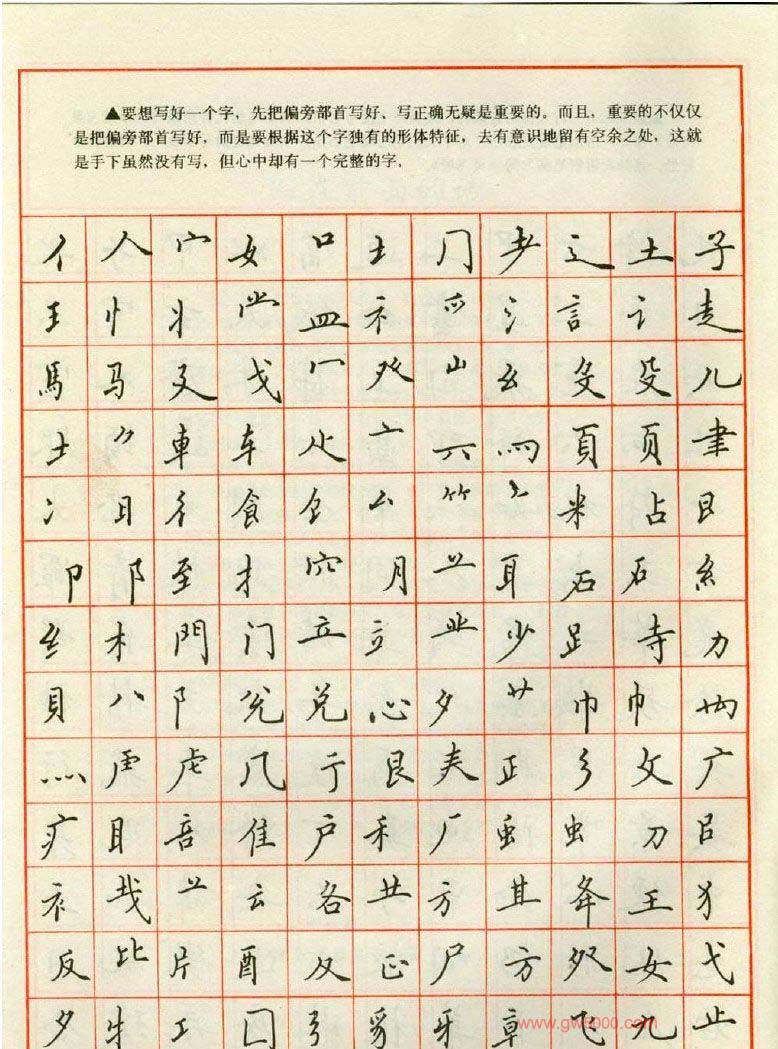 ▲要想写好一个字，先把偏旁部首写好、写正确无疑是重要的。而且，重要的不仅仅
是把偏旁部首写好，而是要根据这个字独有的形体特征，去有意识地留有空余之处，这就
是手下虽然没有写，但心中却有一个完整的字。
亻 人 宀 女 口 土 冂 耂 辶 土 子
王 忄 丬 龸 皿 礻 爫 氵 言 讠 走
馬 马 廴 戈 冖 癶 山 幺 殳 殳 儿
士 車 车 亠 六 罒 頁 页 聿
冫 日 彳 食 厶 ⺮ 米 占 日
卩 阝 至 扌 穴 月 䒑 耳 石 石 糹
纟 木 門 门 立 立 业 少 足 寺 力
貝 八 阝 兑 心 夕 艹 巾 巾
灬 虍 虎 几 亍 艮 夫 正 彡 文 广
疒 目 音 隹 户 禾 厂 虫 虫 刀 吕
衤 䒑 云 各 龷 方 其 夅 王 犭
反 比 片 酉 及 正 尸 方 女 弋
夕 牛 工 囗 弓 豸 牙 章 飞 九 止
www.gw8000.com